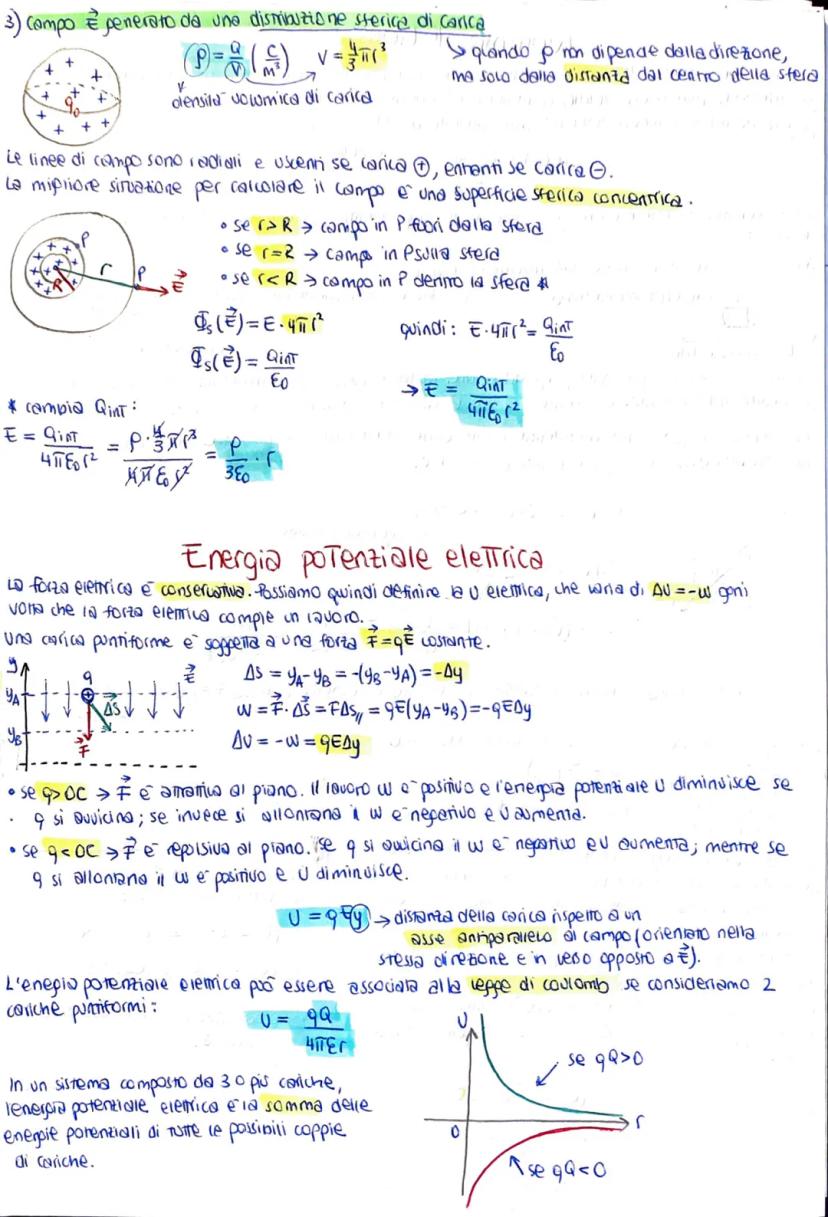 3) Campo E⃗ generato da una distribuzione sferica di carica
ρ = Q/V (C/m³)   V = 4/3 πr³   ↳ quando ρ non dipende dalla direzione,
ma solo dalla distanza dal centro della sfera
densità volumica di carica
+ + + + + + + + + +
q₀
Le linee di campo sono radiali e uscenti se carica ⊕, entranti se carica ⊖.
La migliore situazione per calcolare il campo è una superficie sferica concentrica.
• se r>R → campo in P fuori dalla sfera
• se r=R → campo in P sulla sfera
• se r<R → campo in P dentro la sfera *
P r P E⃗ R
Φs(E⃗) = E · 4πr²   quindi: E · 4πr² = Qint/ε0
Φs(E⃗) = Qint/ε0
→ E = Qint/4πε0r²
* cambia Qint:
E = Qint/4πε0r² = ρ · 4/3 πr³/4πε0r² = ρ/3ε0 · r
Energia potenziale elettrica
La forza elettrica è conservativa. Possiamo quindi definire la U elettrica, che varia di ΔU = -W ogni
volta che la forza elettrica compie un lavoro.
Una carica puntiforme è soggetta a una forza F⃗ = qE⃗ costante.
y q E⃗
yA ΔS⃗
yB F⃗
ΔS = yA - yB = -(yB - yA) = -Δy
W = F⃗ · ΔS⃗ = FΔS∥ = qE(yA - yB) = -qEΔy
ΔU = -W = qEΔy
• se q>0C → F⃗ è attrattiva al piano. Il lavoro W è positivo e l'energia potenziale U diminuisce se
q si avvicina; se invece si allontana il W è negativo e U aumenta.
• se q<0C → F⃗ è repulsiva al piano. Se q si avvicina il W è negativo e U aumenta; mentre se
q si allontana il W è positivo e U diminuisce.
U = qEy → distanza della carica rispetto a un
asse antiparallelo al campo (orientato nella
stessa direzione e in verso opposto a E⃗).
L'enegia potenziale elettrica può essere associata alla legge di coulomb se consideriamo 2
cariche puntiformi:
U = qQ/4πεr
U
se qQ>0
r
0
se qQ<0
In un sistema composto da 3 o più cariche,
l'energia potenziale elettrica è la somma delle
energie potenziali di tutte le possibili coppie
di cariche.